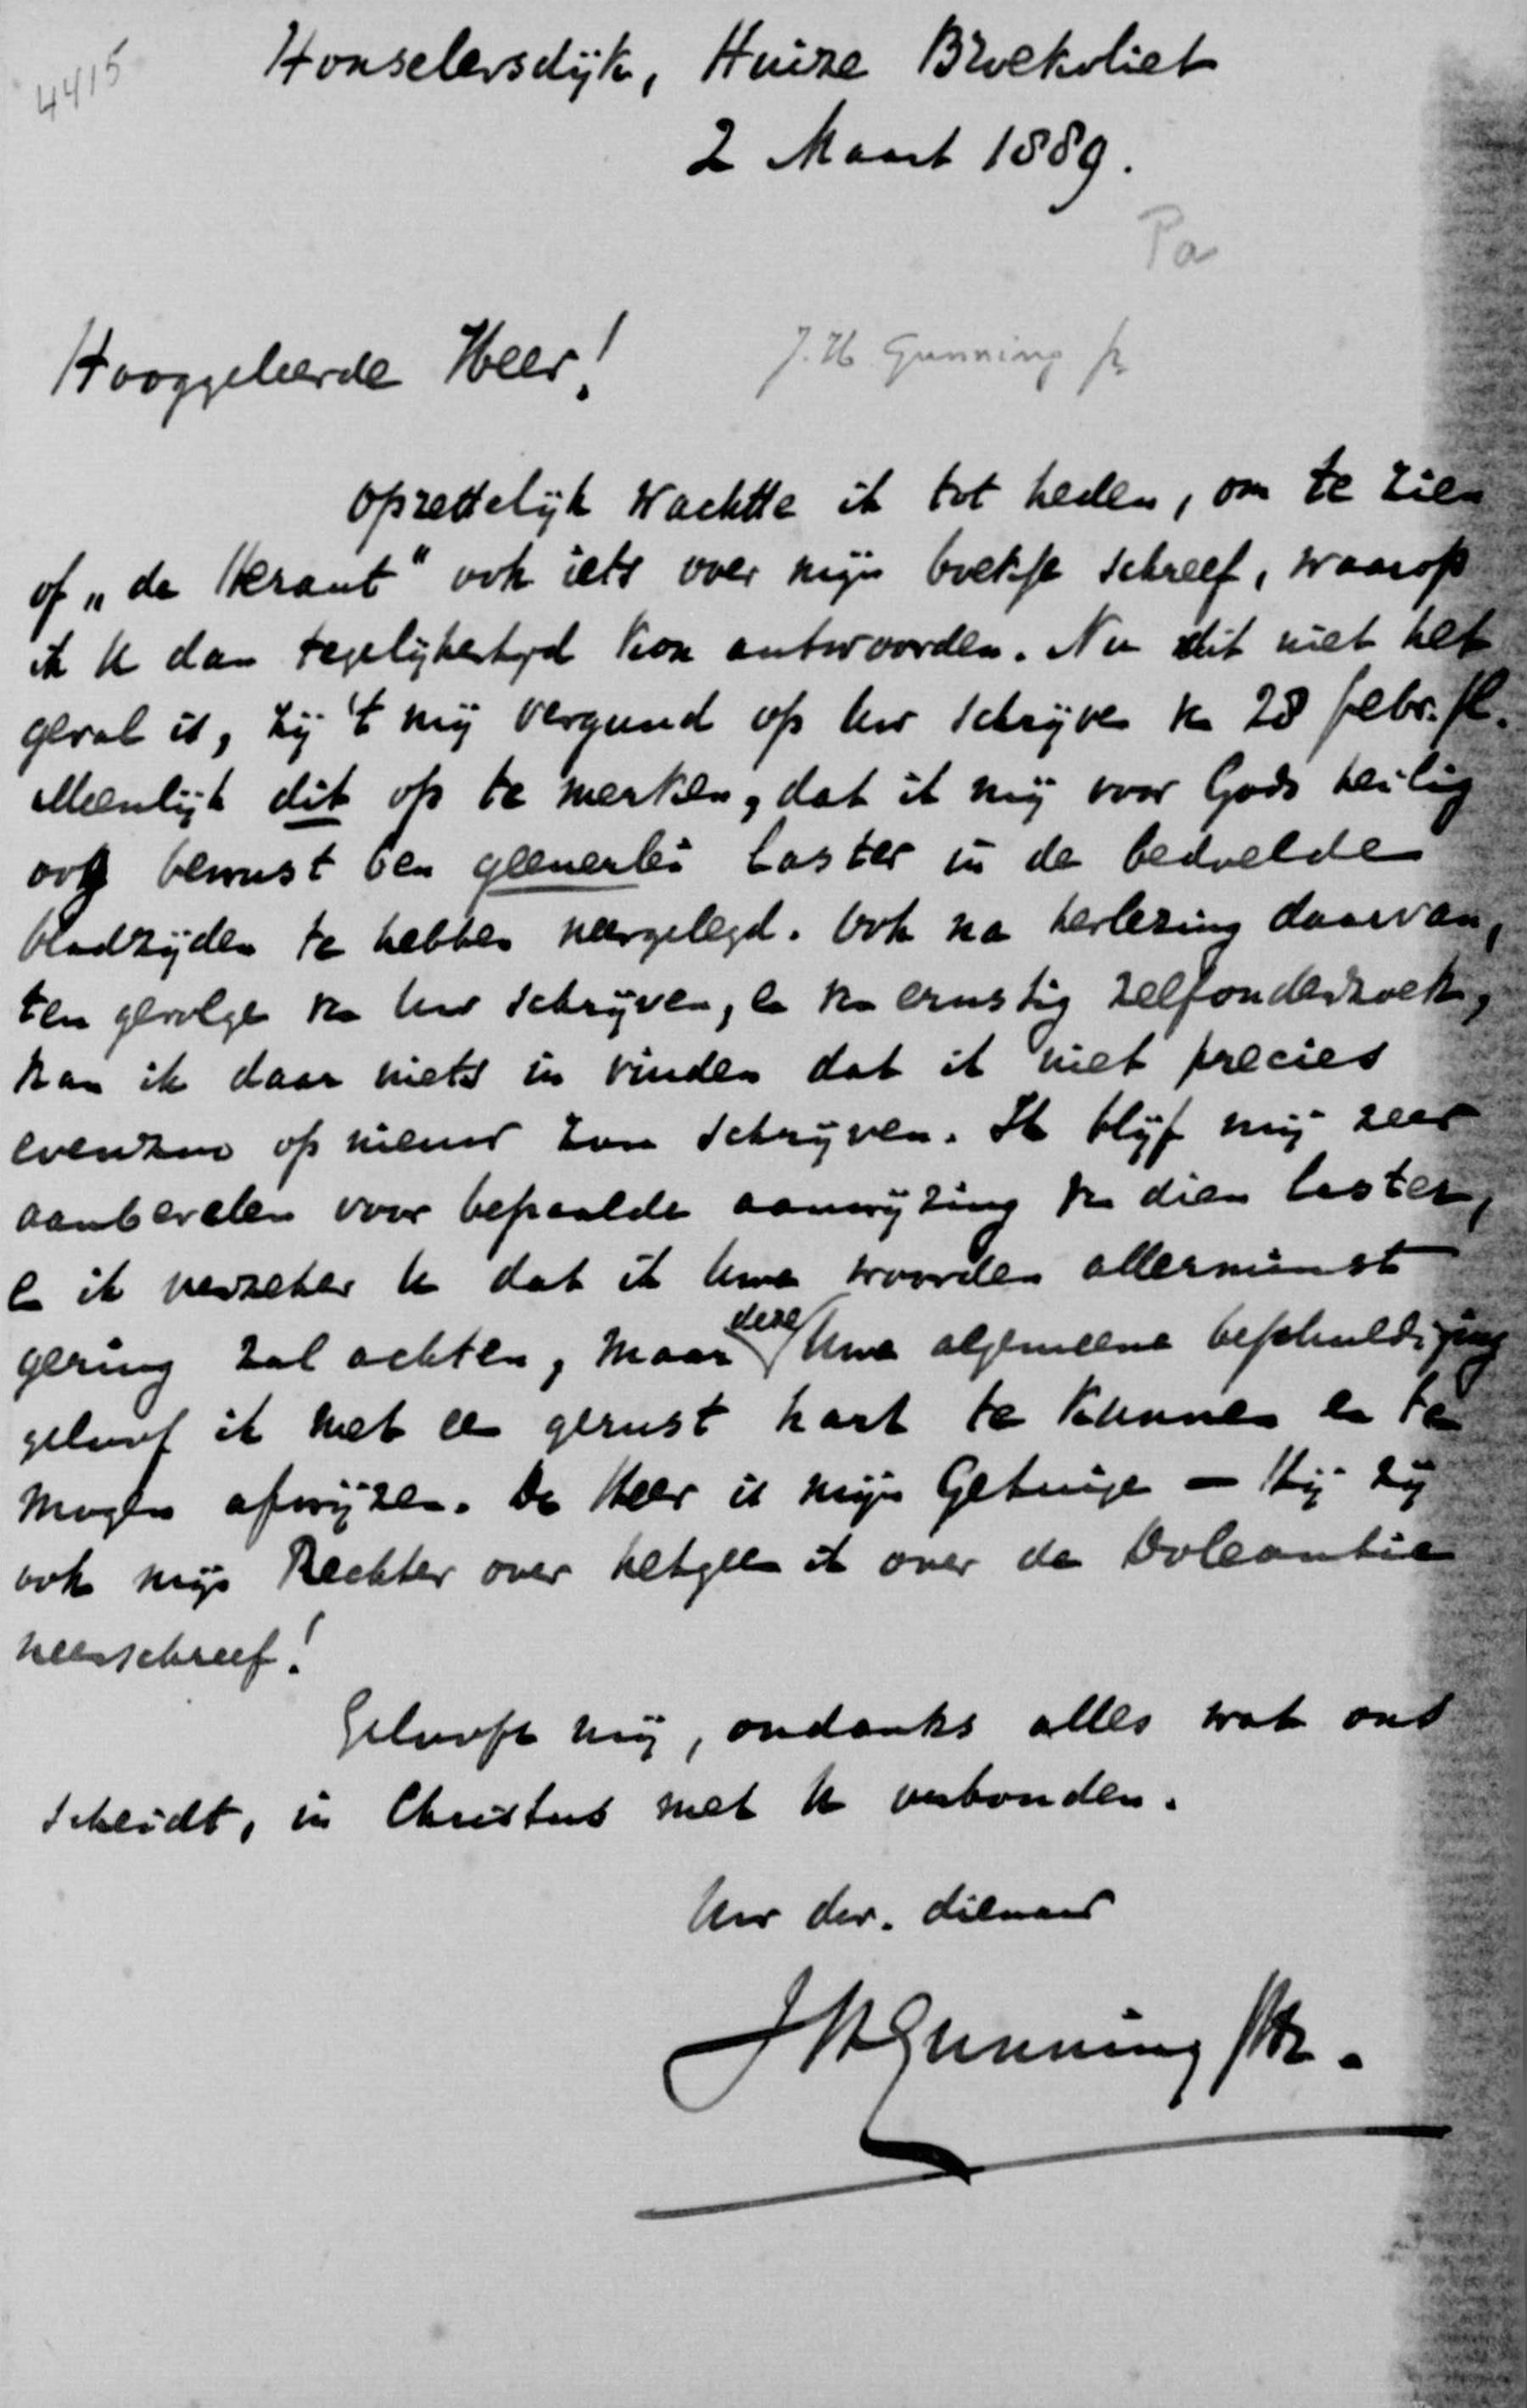 4415
Honselersdijk, Huize Broekvliet
2 Maart 1889.
Pa
Hooggeleerde Heer!
J. H. Gunning jr
Opzettelijk wachtte ik tot heden, om te zien
of „de Heraut" ook iets over mijn boekje schreef, waarop
ik U dan tegelijkertijd kon antwoorden. Nu dit niet het
geval is, zij 't mij vergund op Uw schrijven v. 28 febr. jl.
alleenlijk dit op te merken, dat ik mij voor Gods heilig
oog bewust ben geenerlei laster in de bedoelde
bladzijden te hebben neergelegd. Ook na herlezing daarvan,
ten gevolge v. Uw schrijven, en na ernstig zelfonderzoek,
kan ik daar niets in vinden dat ik niet precies
evenzoo op nieuw zou schrijven. Ik blijf mij zeer
aanbevelen voor bepaalde aanwijzing v. dien laster,
en ik verzeker U dat ik Uwe woorden allerminst
gering zal achten, maar deze Uwe algemeene beschuldiging
geloof ik met een gerust hart te kunnen en te
mogen afwijzen. De Heer is mijn Getuige — Hij zij
ook mijn Rechter over hetgeen ik over de Doleantie
neerschreef!
Geloof mij, ondanks alles wat ons
scheidt, in Christus met U verbonden.
Uw dw. dienaar
JHGunning JHz.